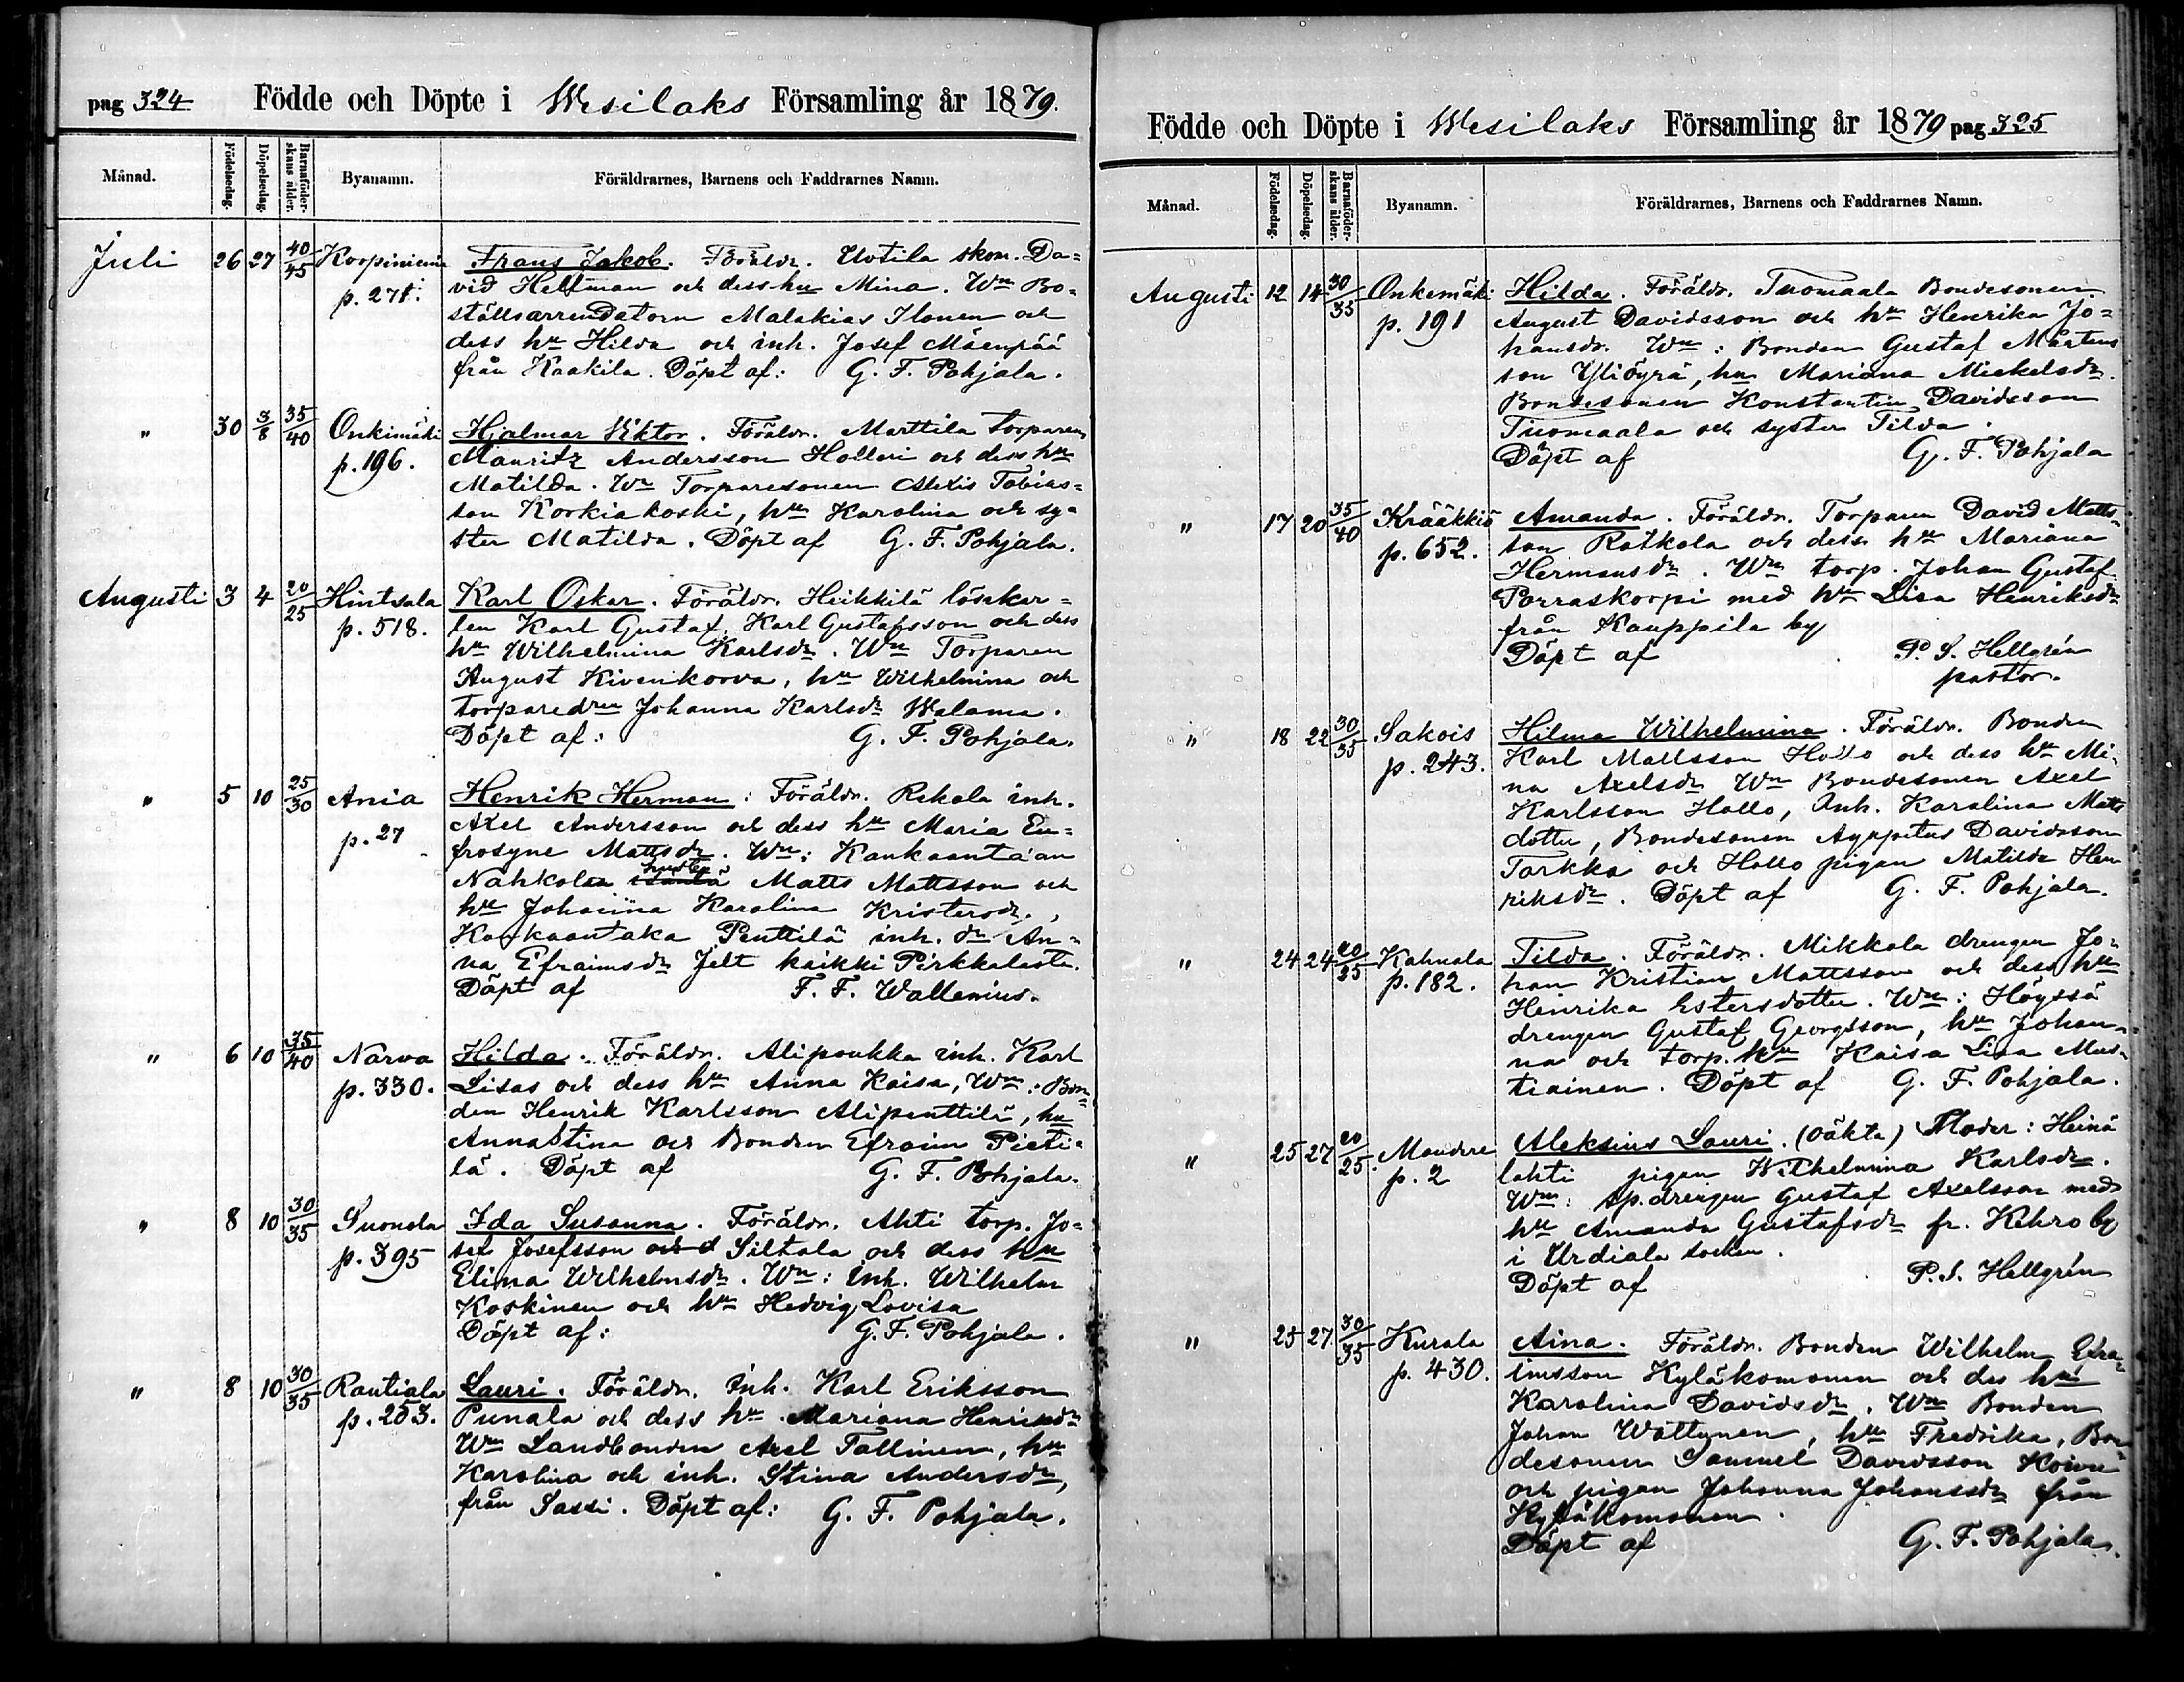 pag 324 Födde och Döpte i Wesilaks Församling år 1879.
Månad. Födelsedag. Döpelsedag. Barnaföderskans ålder. Byanamn. Föräldrarnes, Barnens och Faddrarnes Namn.
Juli 26 27 40/45 Korpiniemi Frans Jakob. Föräldr. Uotila skom. Da=
p. 271. vid Hellman och dess hu Mina. Wn Bo=
ställsarrendatorn Malakias Ilonen och
dess hu Hilda och inh. Josef Mäenpää
från Kaakila. Döpt af: G. F. Pohjala.
" 30 3/8 35/40 Onkimäki Hjalmar Viktor. Föräldr. Marttila torparen
p. 196. Mauritz Andersson Holleri och dess hu
Matilda. Wn Torparesonen Alexis Tobias=
son Korkiakoski, hu Karolina och sy=
ster Matilda. Döpt af G. F. Pohjala.
Augusti 3 4 20/25 Hintsala Karl Oskar. Föräldr. Heikkilä löskar=
p. 518. len Karl Gustaf, Karl Gustafsson och dess
hu Wilhelmina Karlsdr. Wn Torparen
August Kivenkorva, hu Wilhelmina och
torparedrn Johanna Karlsdr Walama.
Döpt af: G. F. Pohjala.
" 5 10 25/30 Ania Henrik Herman: Föräldr. Rekola inh.
p. 27 Axel Andersson och dess hu Maria Eu=
frosyne Mattsdr. Wn: Kankaantaan
Nahkolan Matts Mattsson och
hu Johanna Karolina Kristersdr.,
Kankaantaka Penttilä inh. dr An=
na Efraimsdr Jelt kaikki Pirkkalasta.
Döpt af F. F. Wallenius.
" 6 10 35/40 Narva Hilda. Föräldr. Alipoukka inh. Karl
p. 330. Lisas och dess hu Anna Kaisa, Wn: Bon=
den Henrik Karlsson Alipenttilä, hu
Annastina och Bonden Efraim Pieti=
lä. Döpt af G. F. Pohjala.
" 8 10 30/35 Suonola Ida Susanna. Föräldr. Ahti torp. Jo=
p. 395 sef Josefsson Siltala och dess hu
Elina Wilhelmsdr. Wn: inh. Wilhelm
Koskinen och hu Hedvig Lovisa
Döpt af: G. F. Pohjala.
" 8 10 30/35 Rautiala Lauri. Föräldr. inh. Karl Eriksson
p. 253. Punala och dess hu Mariana Henriksdr
Wn Landbonden Axel Tallinen, hu
Karolina och inh. Stina Andersdr,
från Sassi. Döpt af: G. F. Pohjala.
Födde och Döpte i Wesilaks Församling år 1879 pag 325
Månad. Födelsedag. Döpelsedag. Barnaföderskans ålder. Byanamn. Föräldrarnes, Barnens och Faddrarnes Namn.
Augusti 12 14 30/35 Onkemäki Hilda. Föräldr. Tuomaala Bondesonen
p. 191 August Davidsson och hu Henrika Jo=
hansdr. Wn: Bonden Gustaf Mårtens
son Yliöyrä, hu Mariana Mickelsdr.
Bondesonen Konstantin Davidsson
Tuomaala och syster Tilda.
Döpt af G. F. Pohjala
" 17 20 35/40 Krääkkiö Amanda. Föräldr. Torparen David Matts=
p. 652. son Ratkola och dess hu Mariana
Hermansdr. Wn torp. Johan Gustaf
Porraskorpi med hu Lisa Henriksdr
från Kauppila by
Döpt af P. S. Hellgrén
pastor.
" 18 22 30/35 Sakois Hilma Wilhelmina. Föräldr. Bonden
p. 243. Karl Mattsson Hollo och dess hu Mi=
na Axelsdr Wn Bondesonen Axel
Karlsson Hollo, Inh. Karolina Matts
dotter, Bondesonen Agapetus Davidsson
Torkko och Hollo pigan Matilda Hen
riksdr. Döpt af G. F. Pohjala.
" 24 24 20/25 Kahnala Tilda. Föräldr. Mikkola drengen Jo=
p. 182. han Kristian Mattsson och dess hu
Henrika Estersdotter. Wn: Höyssä
drengen Gustaf Georgsson, hu Johan=
na och torp. hu Kaisa Lisa Mus=
tiainen. Döpt af G. F. Pohjala.
" 25 27 20/25. Mandere Aleksius Lauri. (oäkta) Moder: Heinä
p. 2 lahti pigan Wilhelmina Karlsdr.
Wn: sp.drengen Gustaf Axelsson med
hu Amanda Gustafsdr fr. Kehro by
i Urdiala socken.
Döpt af P. S. Hellgrén
" 25 27 30/35 Kurala Aina. Föräldr. Bonden Wilhelm Efra=
p. 430. imsson Kyläkomonen och des hu
Karolina Davidsdr. Wn Bonden
Johan Wättynen, hu Fredrika, Bon=
desonen Samuel Davidsson Koivu
och pigan Johanna Johansdr från
Kyläkomonen.
Döpt af G. F. Pohjala.